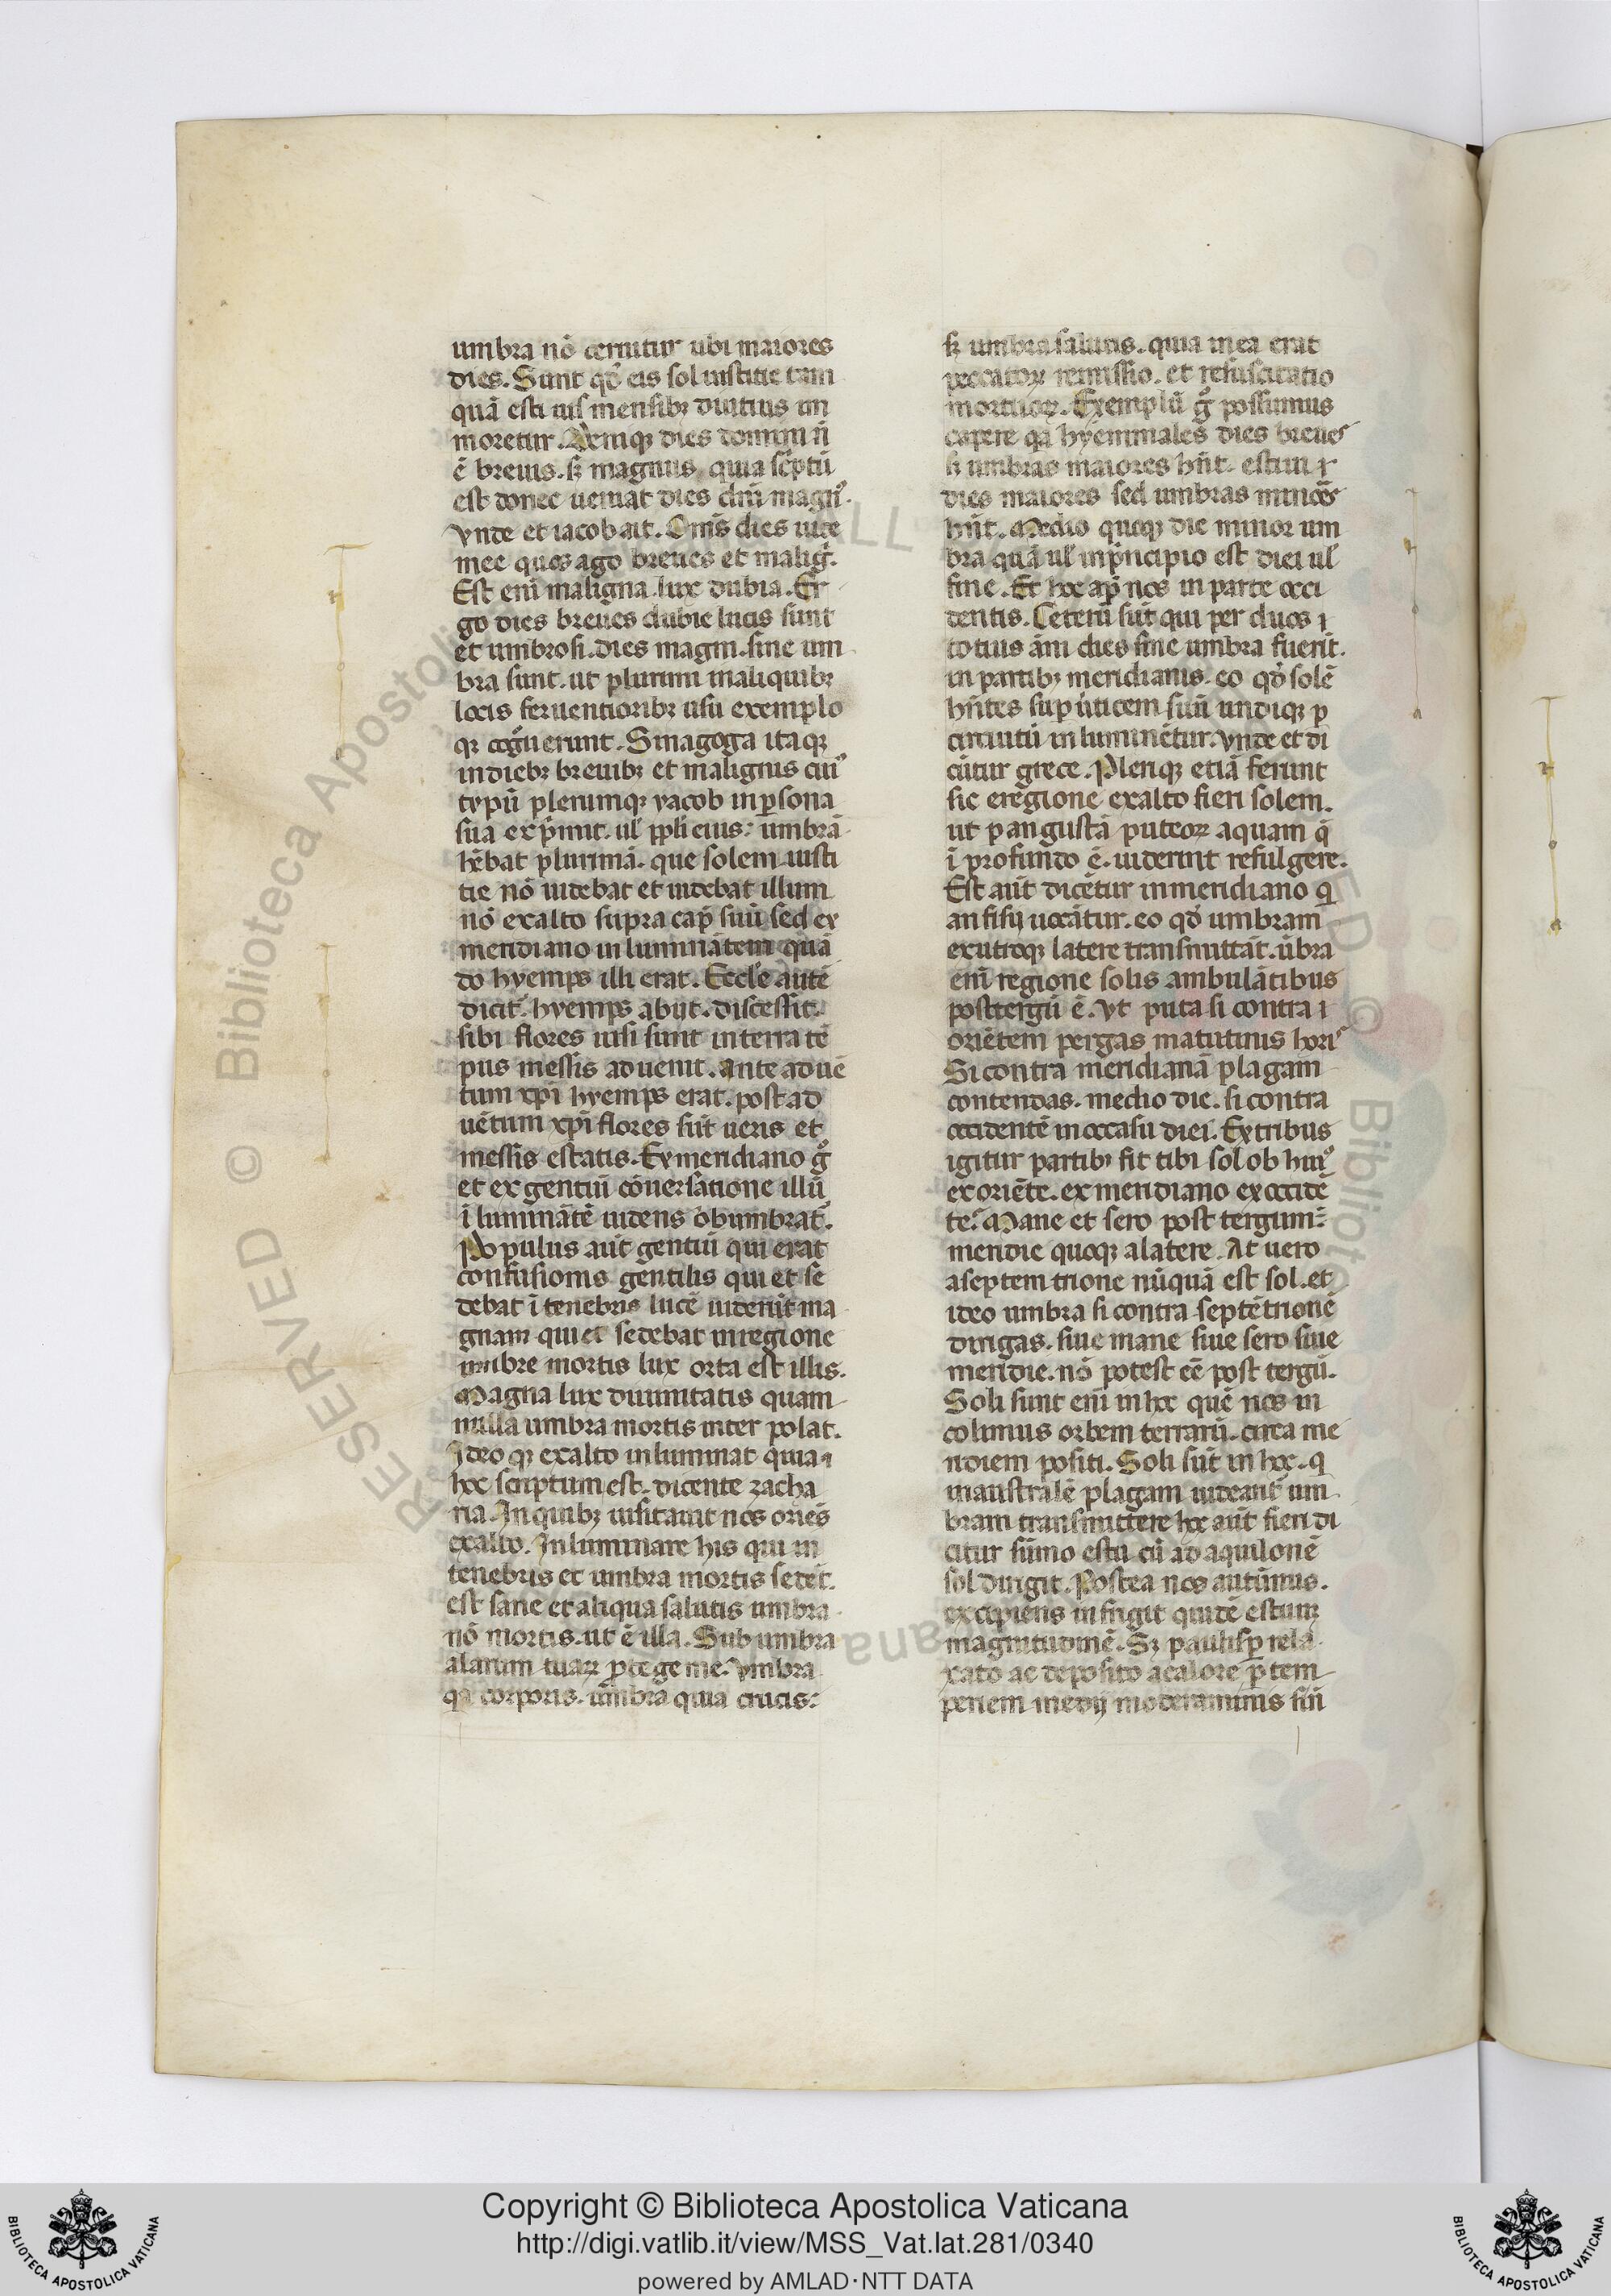 umbra nō cernitur ubi maiores
dies. Sunt qđ eis sol iustitie tam
quā estiuis mensibꝫ diutius im
moretur. Deniqꝫ dies domini n̄
ē breuis. sꝫ magnus quia sc̄ptū
est donec ueniat dies dn̄i magnꝰ.
Vnde et iacob ait. Om̄s dies uite
mee quos ago breues et maliḡ.
Est eni maligna lux dubia. Er
go dies breues dubie lucis sunt
et umbrosi. dies magni. sine um
bra sunt. ut plurimi in aliquibꝫ
locis feruentioribꝫ usu exemplo
qꝫ cog̃uerunt. Sinagoga itaqꝫ
in diebꝫ breuibꝫ et malignis cuiꝰ
typū plerumqꝫ yacob in ꝑsona
sua exp̄mit. ul̓ ppl̓i eius: umbrā
hēbat plurimā. que solem iusti
tie nō uidebat et uidebat illum
nō exalto supra cap̄ suū sed ex
meridiano in luminātem quā
do hyemps illi erat. Eccl̓e autē
dicit̄. hyemps abijt. discessit.
sibi flores uisi sunt in terra tē
pus messis aduenit. Ante aduē
tum xp̄i hyemps erat. post ad
uētum xp̄i flores sūt ueris et
messis estatis. Ex meridiano g̊
et ex gentiū cōuersatione illū
īluminātē uidens obumbrat̄.
Populus aūt gentiū qui erat
confusionis gentilis qui et se
debat ī tenebris lucē uiderūt ma
gnam qui et sedebat in regione
umbre mortis lux orta est illis.
Magna lux diuinitatis quam
nulla umbra mortis inter polat.
Ideo qꝫ exalto inluminat quia ⁊
hoc scriptum est. dicente zacha
ria. In quibꝫ uisitauit nos oriēs
exalto. Inluminare his qui in
tenebris et umbra mortis sedēt.
est sane et aliqua salutis umbra
nō mortis. ut ē illa. Sub umbra
alarum tuaꝝ ꝓtege me. Vmbra
qa corporis. umbra quia crucis:
sꝫ umbra salutis. quia in ea erat
peccatoꝝ remissio. et resuscitatio
mortuoꝝ. Exemplū g̊ possumus
capere qa hyemmales dies breues
si umbras maiores hn̄t. estiui ⁊
dies maiores sed umbras minores
hn̄t. Medio quoqꝫ die minor um
bra quā ul̓ in p̄ncipio est diei ul̓
fine. Et hoc ap̄ nos in parte occi
dentis. Ceterū sūt qui per duos ⁊
totius āni dies sine umbra fuerit.
in partibꝫ meridianis. eo qđ solē
hn̄tes sup̄ uticem suū undiqꝫ ꝑ
circuitū in luminētur. Vnde et di
cūtur grece. Pleriqꝫ etiā ferunt
sic eregione exalto fieri solem.
ut ꝑ angustā puteoꝝ aquam q̄
ī profundo ē. uiderint refulgere.
Est aūt dicētur in meridiano q
anfisij uocātur. eo qđ umbram
ex utroqꝫ latere transmittāt. ūbra
enī regione solis ambulātibus
post tergū ē. Vt puta si contra ⁊
oriētem pergas matutinis horis
Si contra meridianā plagam
contendas. medio die. si contra
occidentē in occasu diei. Ex tribus
igitur partibꝫ fit tibi sol ob huiꝰ
ex oriēte. ex meridiano ex occidē
te. Mane et sero post tergum:
meridie quoqꝫ alatere. At uero
aseptem trione nūquā est sol. et
ideo umbra si contra septētrionē
dirigas. siue mane siue sero siue
meridie. nō potest eē post tergū.
Soli sunt eni in hoc quē nos in
colimus orbem terrarū. circa me
ridiem positi. Soli sūt in hoc. q
in australē plagam uideant̄ um
bram transmittere hoc aūt fieri di
citur sūmo estu cū ad aquilonē
sol dirigit. Postea nos autūmus.
excipiens infrigit quidē estum
magnitudinē. Sꝫ paulisꝑ rela
xato ac deposito acalore ꝑ tem
periem medij moderaminis sin̄
Copyright © Biblioteca Apostolica Vaticana
http://digi.vatlib.it/view/MSS_Vat.lat.281/0340
powered by AMLAD·NTT DATA